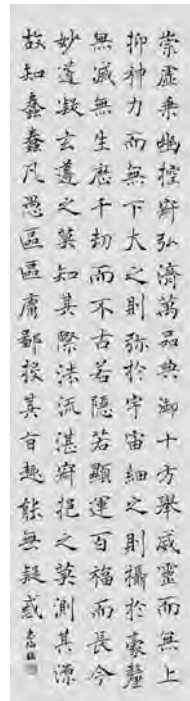 崇虛乘幽控寂弘濟萬品典御十方舉威靈而無上
抑神力而無下大之則弥於宇宙細之則攝於豪釐
無滅無生歷千劫而不古若隱若顯運百福而長今
妙道凝玄遵之莫知其際法流湛寂挹之莫測其源
故知蠢蠢凡愚區區庸鄙投其旨趣能無疑惑